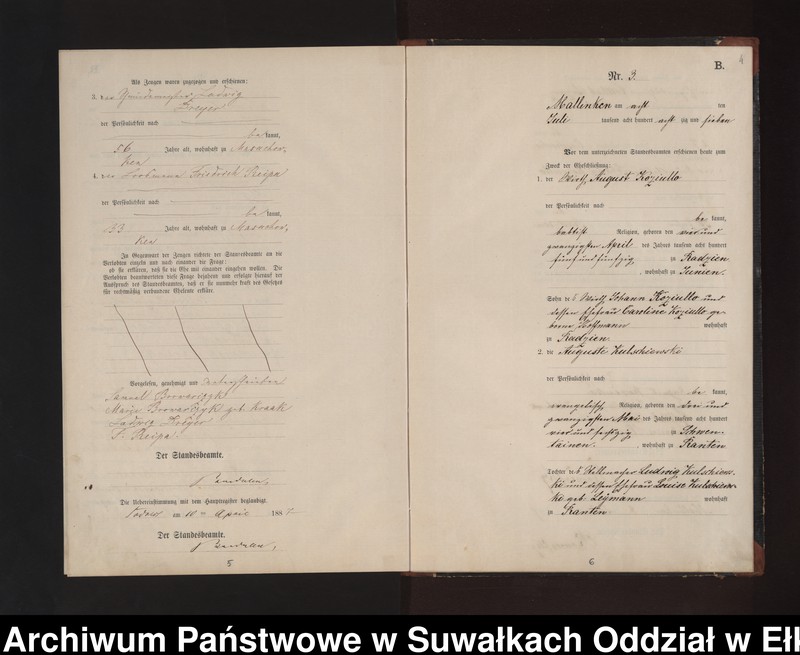 Als Zeugen waren zugezogen und erschienen:
3. der Ludwig
Kreyer
der Persönlichkeit nach
be kannt,
56 Jahre alt, wohnhaft zu
4. der Friedrich Reipa
der Persönlichkeit nach
be kannt,
53 Jahre alt, wohnhaft zu
In Gegenwart der Zeugen richtete der Standesbeamte an die
Verlobten einzeln und nach einander die Frage:
ob sie erklären, daß sie die Ehe mit einander eingehen wollen. Die
Verlobten beantworteten diese Frage bejahend und erfolgte hierauf der
Ausspruch des Standesbeamten, daß er sie nunmehr kraft des Gesetzes
für rechtmäßig verbundene Eheleute erkläre.
Vorgelesen, genehmigt und unterschrieben
Samuel
geb
Ludwig Kreyer
F. Reipa
Der Standesbeamte.
Die Uebereinstimmung mit dem Hauptregister beglaubigt.
am 10 ten April 1887
Der Standesbeamte.
5
4
B.
Nr. 3.
Mallenken am acht ten
Juli tausend acht hundert acht zig und sieben
Vor dem unterzeichneten Standesbeamten erschienen heute zum
Zweck der Eheschließung:
1. der Wirth August Koziullo
der Persönlichkeit nach
be kannt,
baptist Religion, geboren den vier und
zwanzigsten April des Jahres tausend acht hundert
fünf und fünfzig zu Radzien
, wohnhaft zu Sunien.
Sohn des Wirth Johann Koziullo und
dessen Ehefrau Caroline Koziullo ge-
borne Hoffmann wohnhaft
zu Radzien.
2. die Auguste Kutschiewski
der Persönlichkeit nach
be kannt,
evangelisch Religion, geboren den drei und
zwanzigsten Mai des Jahres tausend acht hundert
vier und sechszig zu Schwen-
tainen. , wohnhaft zu Kanten
Tochter des Stellmacher Ludwig Kutschiews-
ki und dessen Ehefrau Louise Kutschiews-
ki geb Leymann wohnhaft
zu Kanten.
6
Archiwum Państwowe w Suwałkach Oddział w Ełk